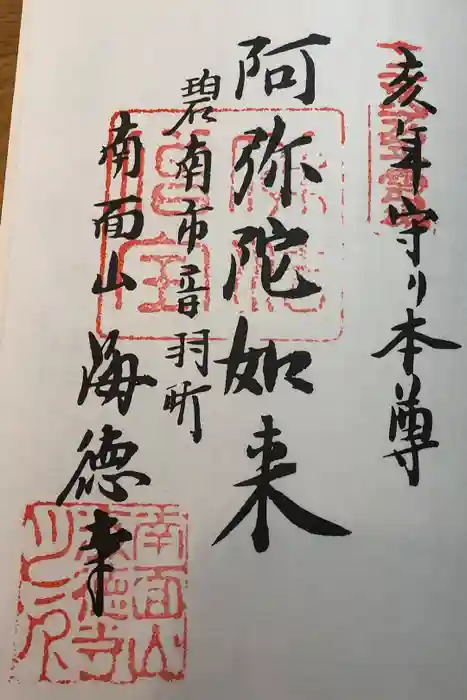 亥年守り本尊
阿弥陀如来
碧南市音羽町
南面山
海徳寺
南面山
海徳寺